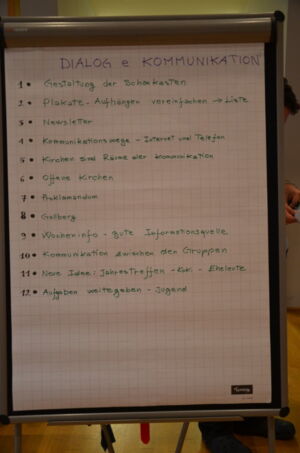 DIALOG e KOMMUNIKATION
1• Gestaltung der Schaukasten
2• Plakate - Aufhängen vereinfachen → Liste
3• Newsletter
4• Kommunikationswege - Internet und Telefon
5• Kirchen sind Räume der Kommunikation
6• Offene Kirchen
7• Proklamandum
8•
9• Wocheninfo - gute Informationsquelle
10• Kommunikation zwischen den Gruppen
11• Neue Idee: Jahrestreffen - - Eheleute
12• Aufgaben weitergeben - Jugend